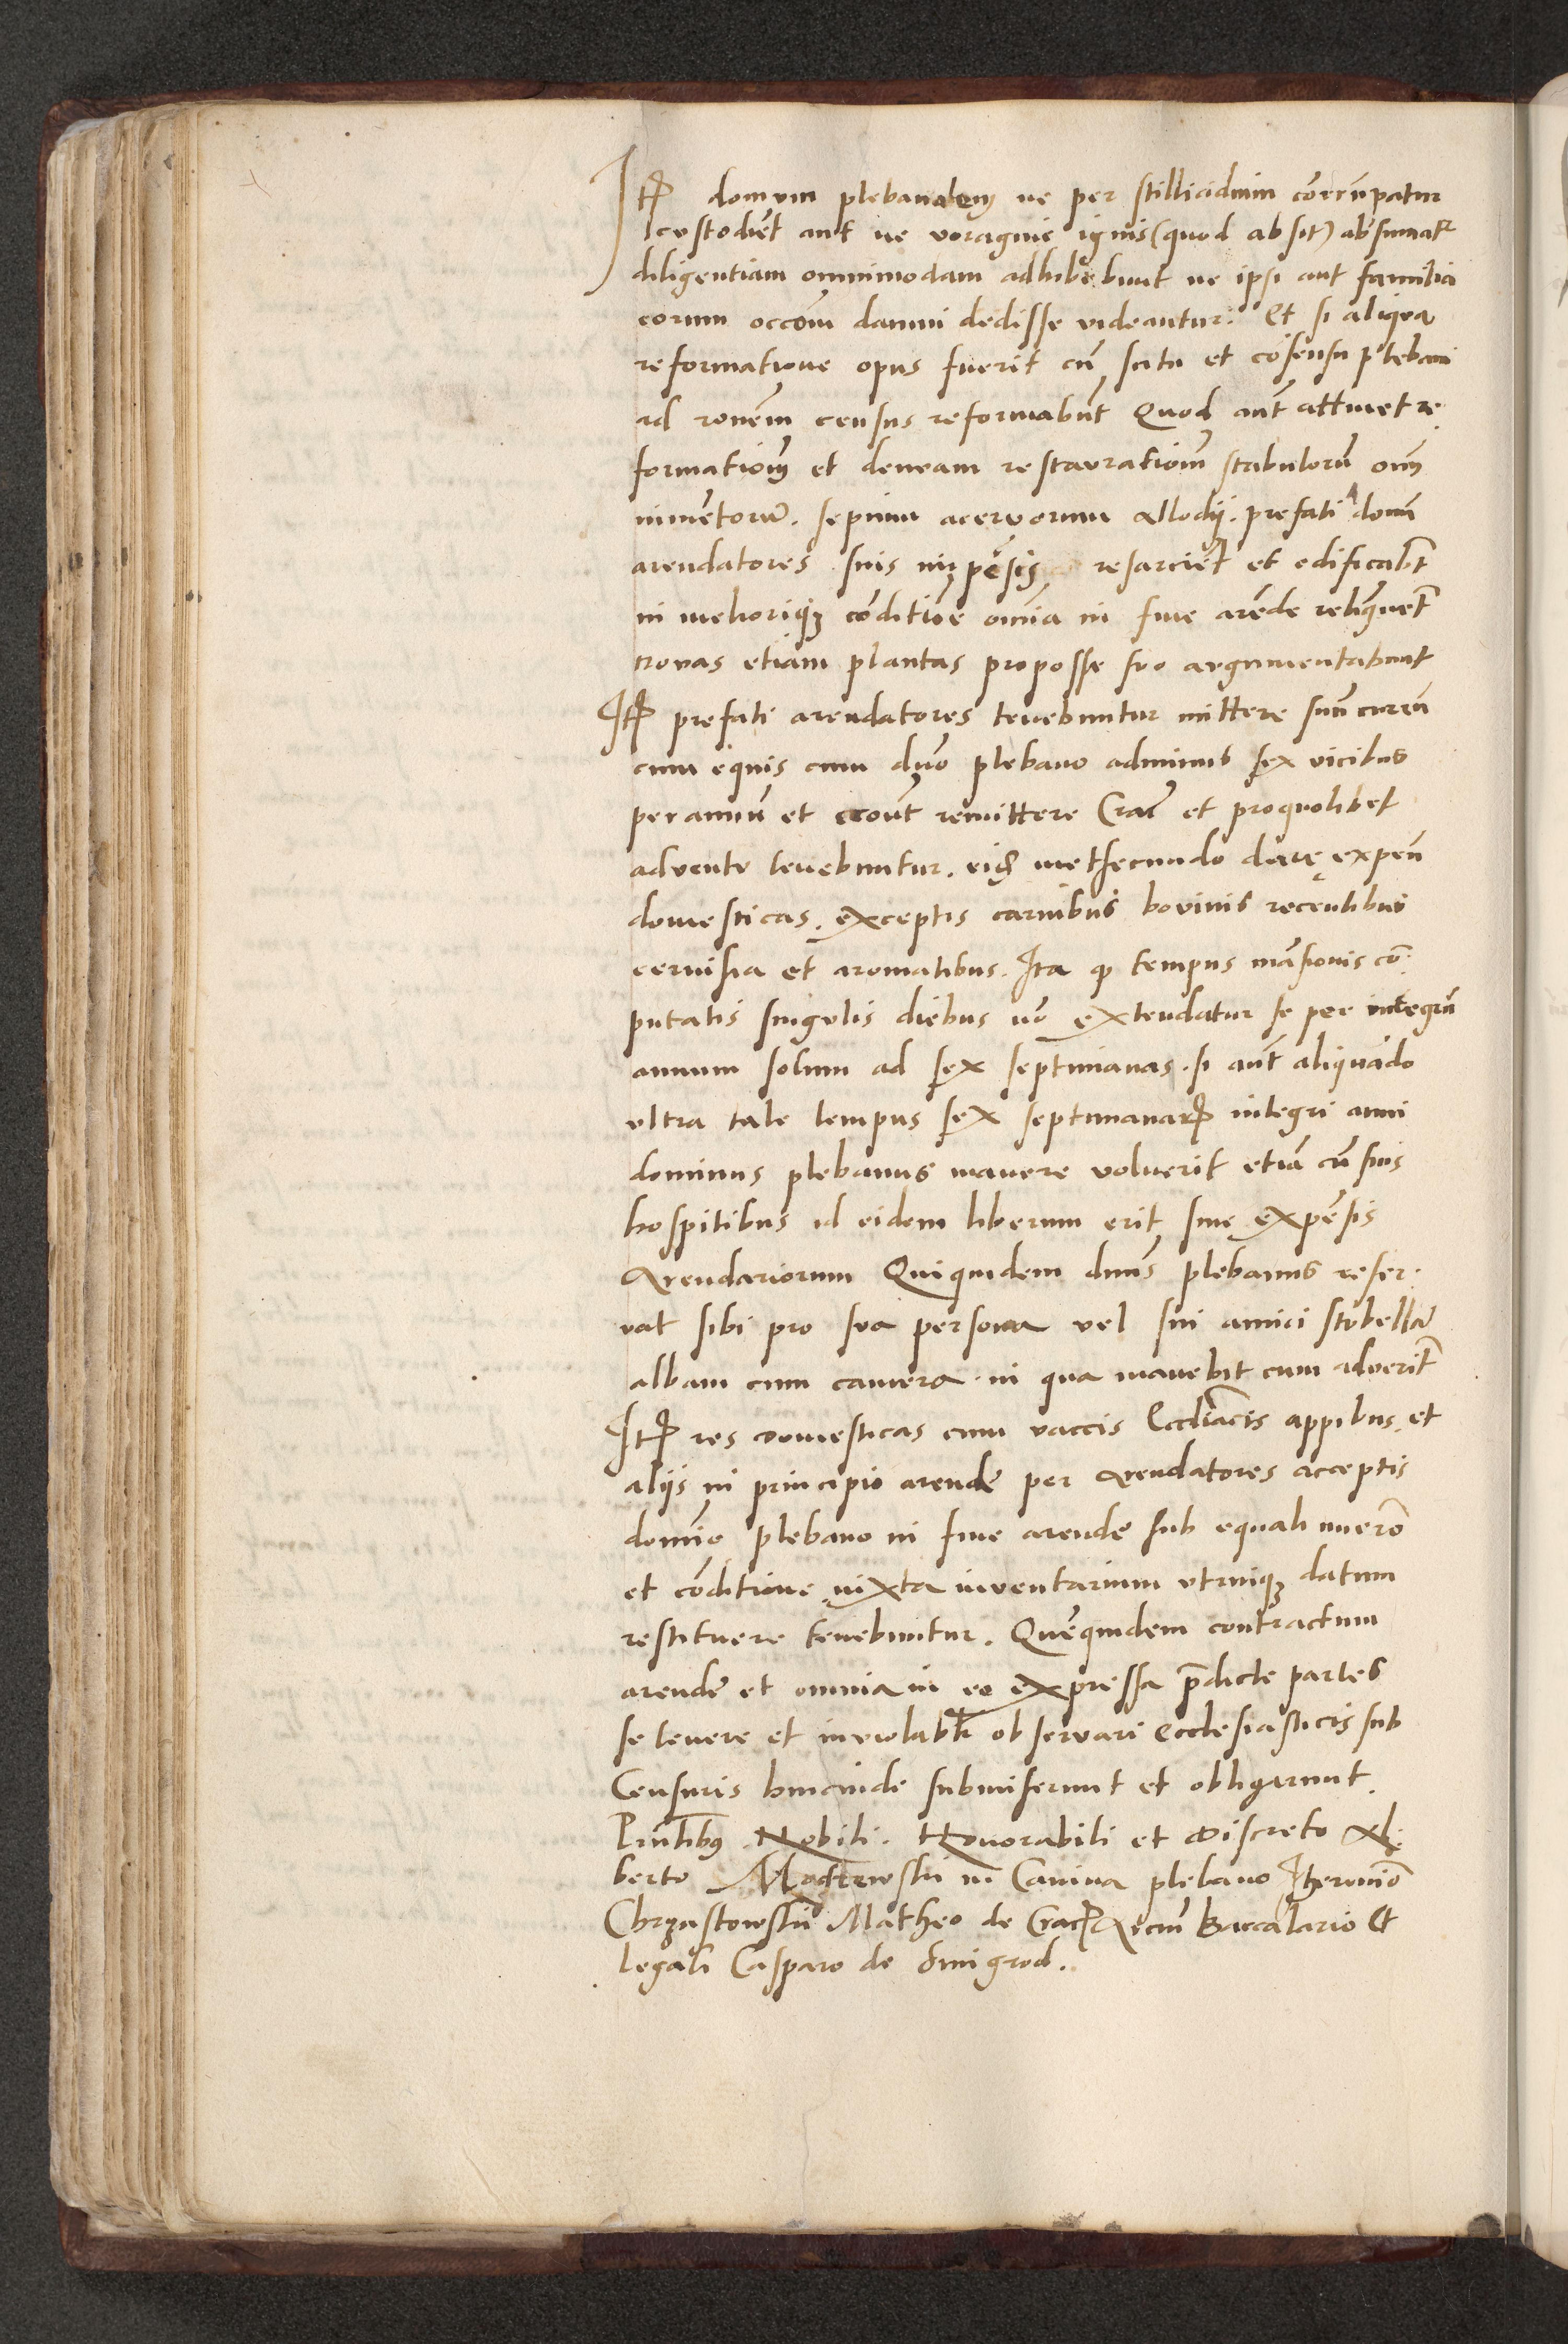 Itꝫ domum plebanalem ne per stillicidium corrũpatur
custodiẽt aut ne voragine ignis (quod absit) absumatr
diligentiam omnimodam adhibebunt ne ipsi aut familia
eorum occoẽm damni dedisse videantur. Et si aliqua
reformatione opus fuerit cũ scitu et cõsensu plebani
ad ronẽm census reformabũt Quod aũt attinet re
formationẽ et deneam restaurationẽ stabulorũ
iumẽtorũ. sepium acervorum allodij. prefati domĩ
arendatores suis impẽsis resarciẽt et edificabũt
in meliorique cõditioe omĩa in fine arẽde relinquẽt
novas etiam plantas proposse suo argumentabunt
Itꝫ prefati arendatores tenebuntur mittere suũ currũ
cum equis cum dno plebano adminus sex vicibus
per annũ et econt̃ remittere Crac̃ et proquolibet
adventu tenebuntur. eiꝫ metsecundo dare expeñ
domesticas. exceptis carnibus bovinis recentibus
cervisia et aromatibus. Ita ꝙ tempus mãsionis cõ
putatis singulis diebus nõ extendatur se per integrũ
annum solum ad sex septimanas. si aũt aliquãdo
ultra tale tempus sex septimanarꝫ integri anni
dominus plebanus manere voluerit etiã cũ suis
hospitibus id eidem liberum erit sine expẽsis
Arendariorum Quiquidem dnus plebanus reser
vat sibi pro sua persona vel sui amici stubellã
albam cum camera. in qua manebit cum advenerit
Itꝫ res domesticas cum vaccis Eccliacis appibus et
alijs in principio arende per arendatores acceptis
domĩo plebano in fine arende sub equali nũero
et cõditione iuxta inventarium utrinque datum
restituere tenebuntur. Quẽquidem contractum
arende et omnia in eo expressa p̃dicte partes
se tenere et inviolabłr observari ecclesiasticis sub
Censuris hincinde submiserunt et obligarunt.
Pñtibus Nobili. Honorabili et Discreto Al
berto Modrzewski in Canina plebano Hieronĩo
Chrzastowskii Matheo de Crac̃ Arciũ Baccalario Et
legali Casparo de Smigrod.